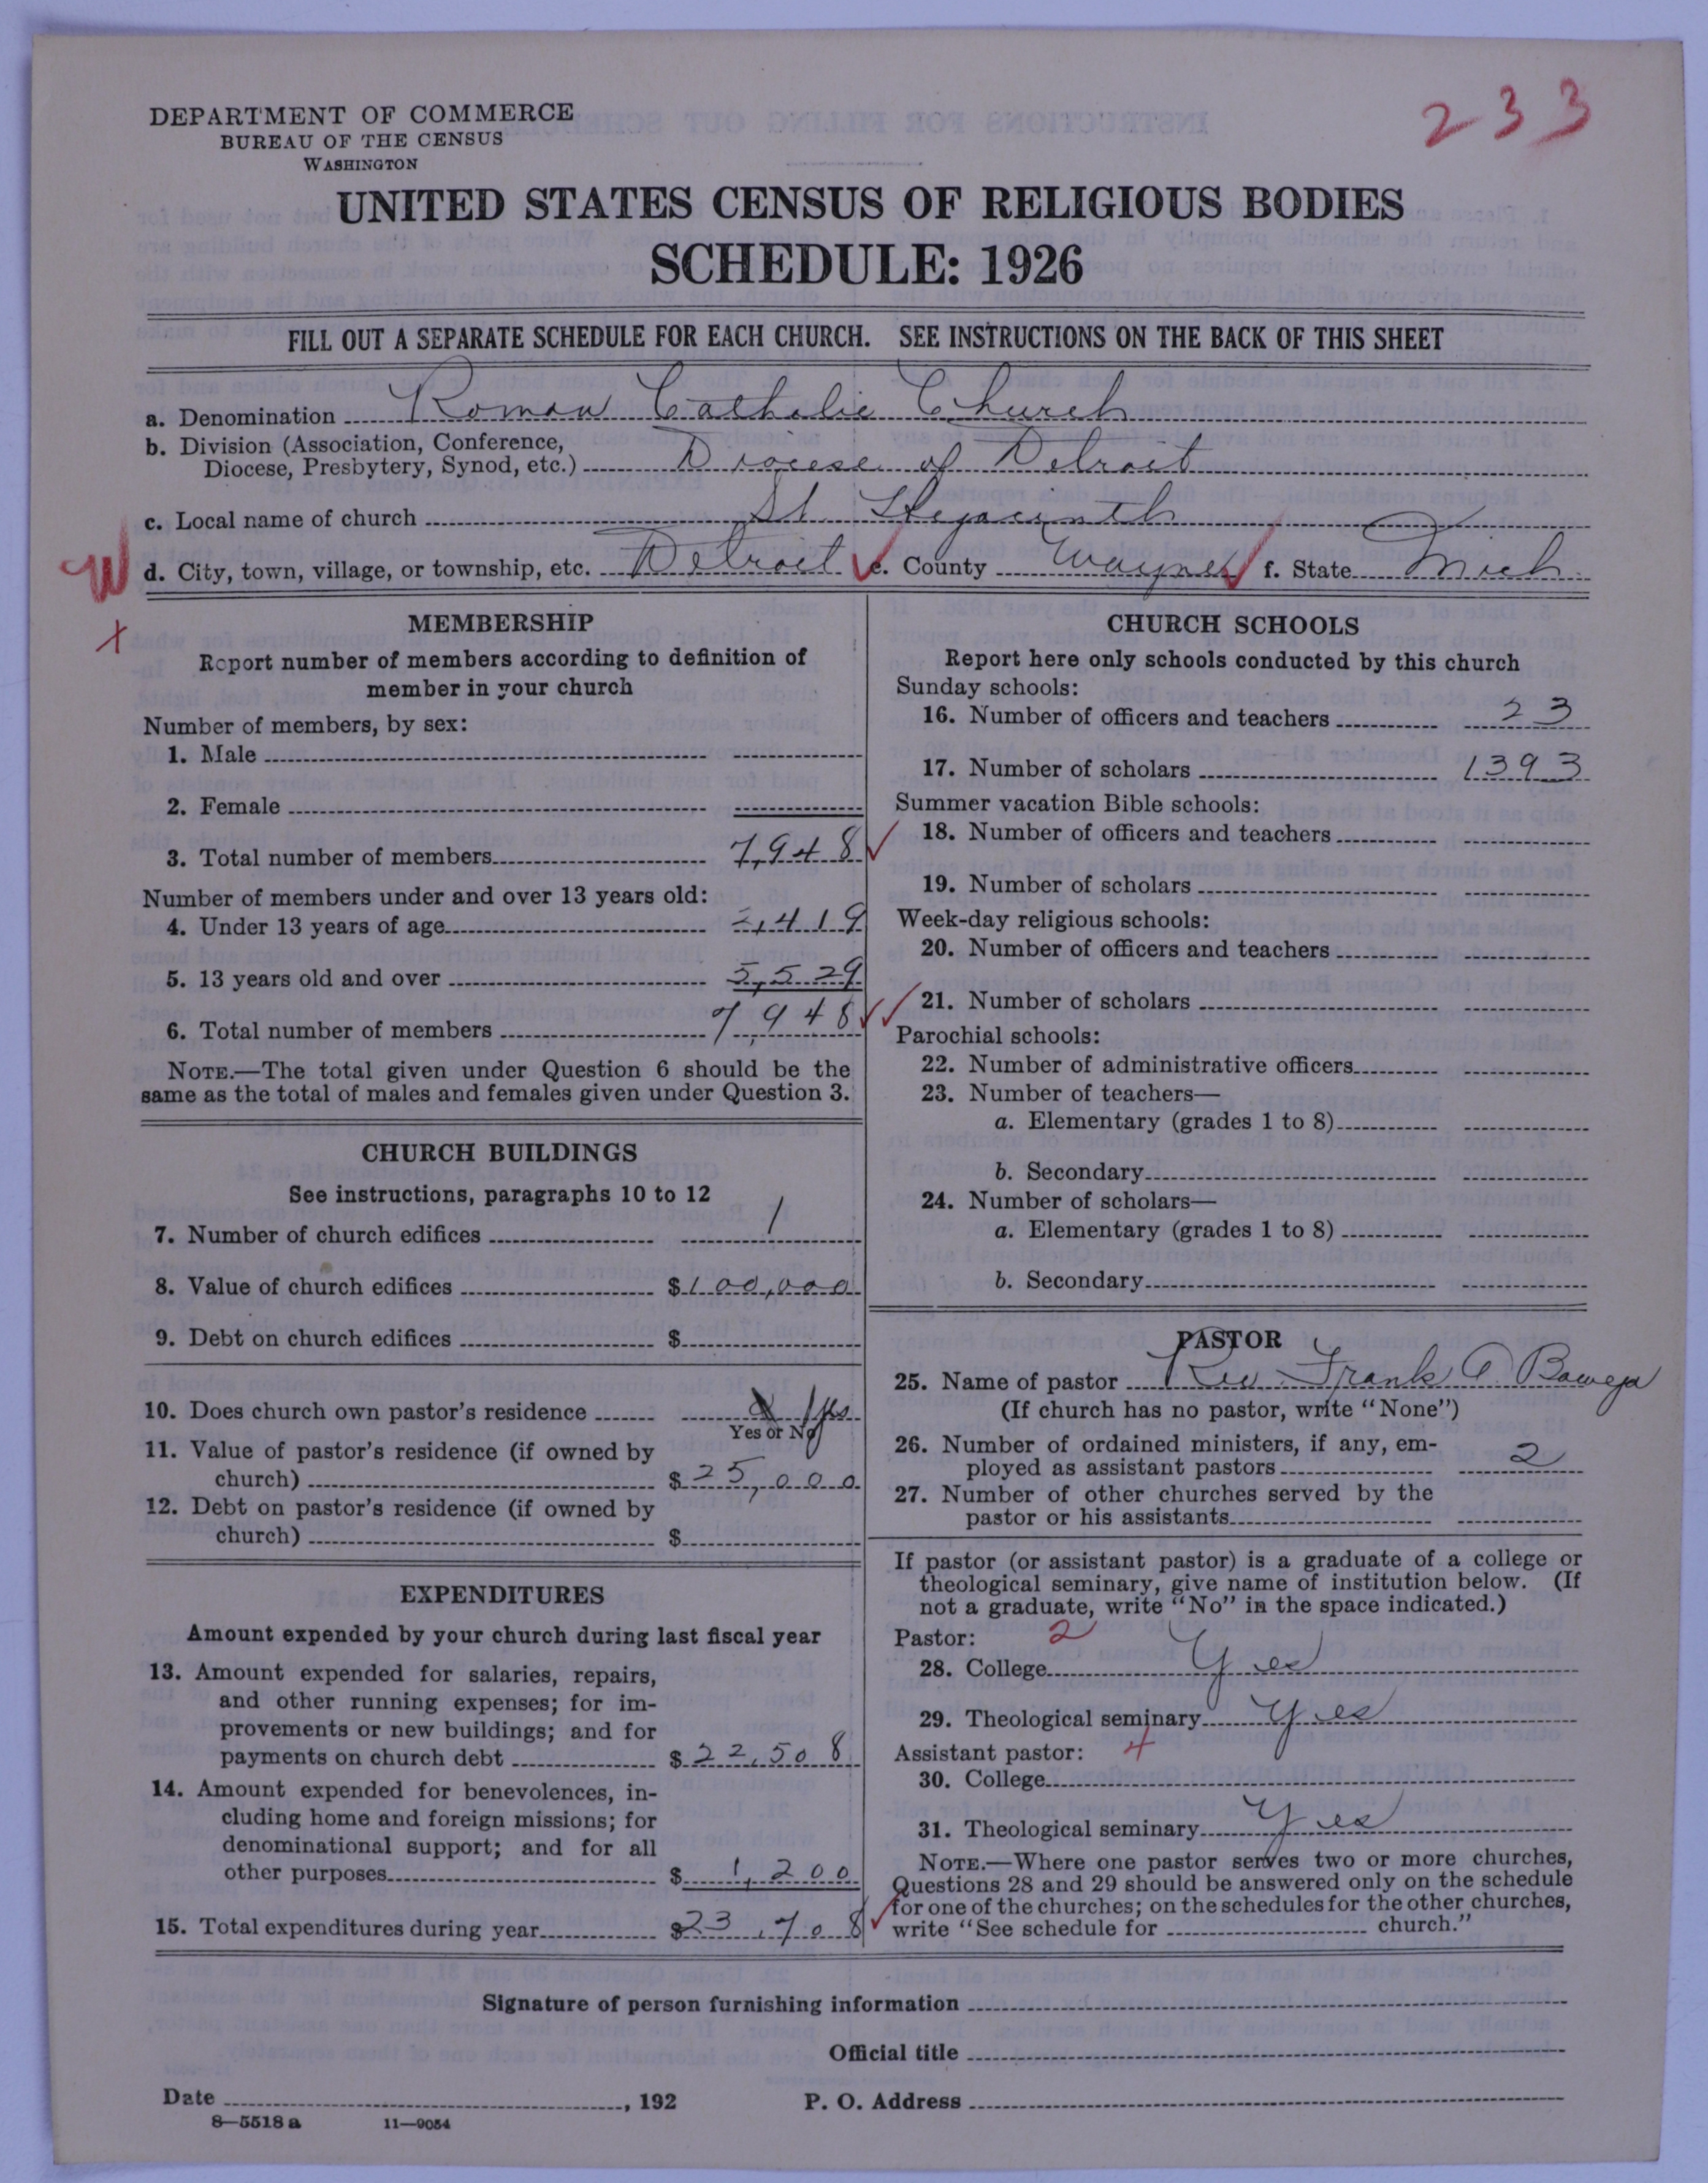 233
DEPARTMENT OF COMMERCE
BUREAU OF THE CENSUS
WASHINGTON
UNITED STATES CENSUS OF RELIGIOUS BODIES
SCHEDULE: 1926
FILL OUT A SEPARATE SCHEDULE FOR EACH CHURCH. SEE INSTRUCTIONS ON THE BACK OF THIS SHEET
a. Denomination Roman Catholic Church
b. Division (Association, Conference,
Diocese, Presbytery, Synod, etc.) Diocese of Detroit
c. Local name of church St. Hyacinth
W d. City, town, village, or township, etc. Detroit ✓ e. County Wayne ✓ f. State Mich
x
MEMBERSHIP
Report number of members according to definition of
member in your church
Number of members, by sex:
1. Male
2. Female
3. Total number of members 7,948 ✓
Number of members under and over 13 years old:
4. Under 13 years of age 2,419
5. 13 years old and over 5,529
6. Total number of members 7,948 ✓✓
NOTE.—The total given under Question 6 should be the
same as the total of males and females given under Question 3.
CHURCH BUILDINGS
See instructions, paragraphs 10 to 12
7. Number of church edifices 1
8. Value of church edifices $100,000
9. Debt on church edifices $
10. Does church own pastor's residence yes
Yes or No
11. Value of pastor's residence (if owned by
church) $25,000
12. Debt on pastor's residence (if owned by
church) $
EXPENDITURES
Amount expended by your church during last fiscal year
13. Amount expended for salaries, repairs,
and other running expenses; for im-
provements or new buildings; and for
payments on church debt $22,508
14. Amount expended for benevolences, in-
cluding home and foreign missions; for
denominational support; and for all
other purposes $1,200
15. Total expenditures during year $23,708 ✓
CHURCH SCHOOLS
Report here only schools conducted by this church
Sunday schools:
16. Number of officers and teachers 23
17. Number of scholars 1393
Summer vacation Bible schools:
18. Number of officers and teachers
19. Number of scholars
Week-day religious schools:
20. Number of officers and teachers
21. Number of scholars
Parochial schools:
22. Number of administrative officers
23. Number of teachers—
a. Elementary (grades 1 to 8)
b. Secondary
24. Number of scholars—
a. Elementary (grades 1 to 8)
b. Secondary
PASTOR
25. Name of pastor Rev. Frank A. Baweja
(If church has no pastor, write "None")
26. Number of ordained ministers, if any, em-
ployed as assistant pastors 2
27. Number of other churches served by the
pastor or his assistants
If pastor (or assistant pastor) is a graduate of a college or
theological seminary, give name of institution below. (If
not a graduate, write "No" in the space indicated.)
Pastor: 2
28. College Yes
29. Theological seminary Yes
Assistant pastor: 4
30. College
31. Theological seminary Yes
NOTE.—Where one pastor serves two or more churches,
Questions 28 and 29 should be answered only on the schedule
for one of the churches; on the schedules for the other churches,
write "See schedule for church."
Signature of person furnishing information
Official title
Date , 192 P. O. Address
8—5518 a 11—9054